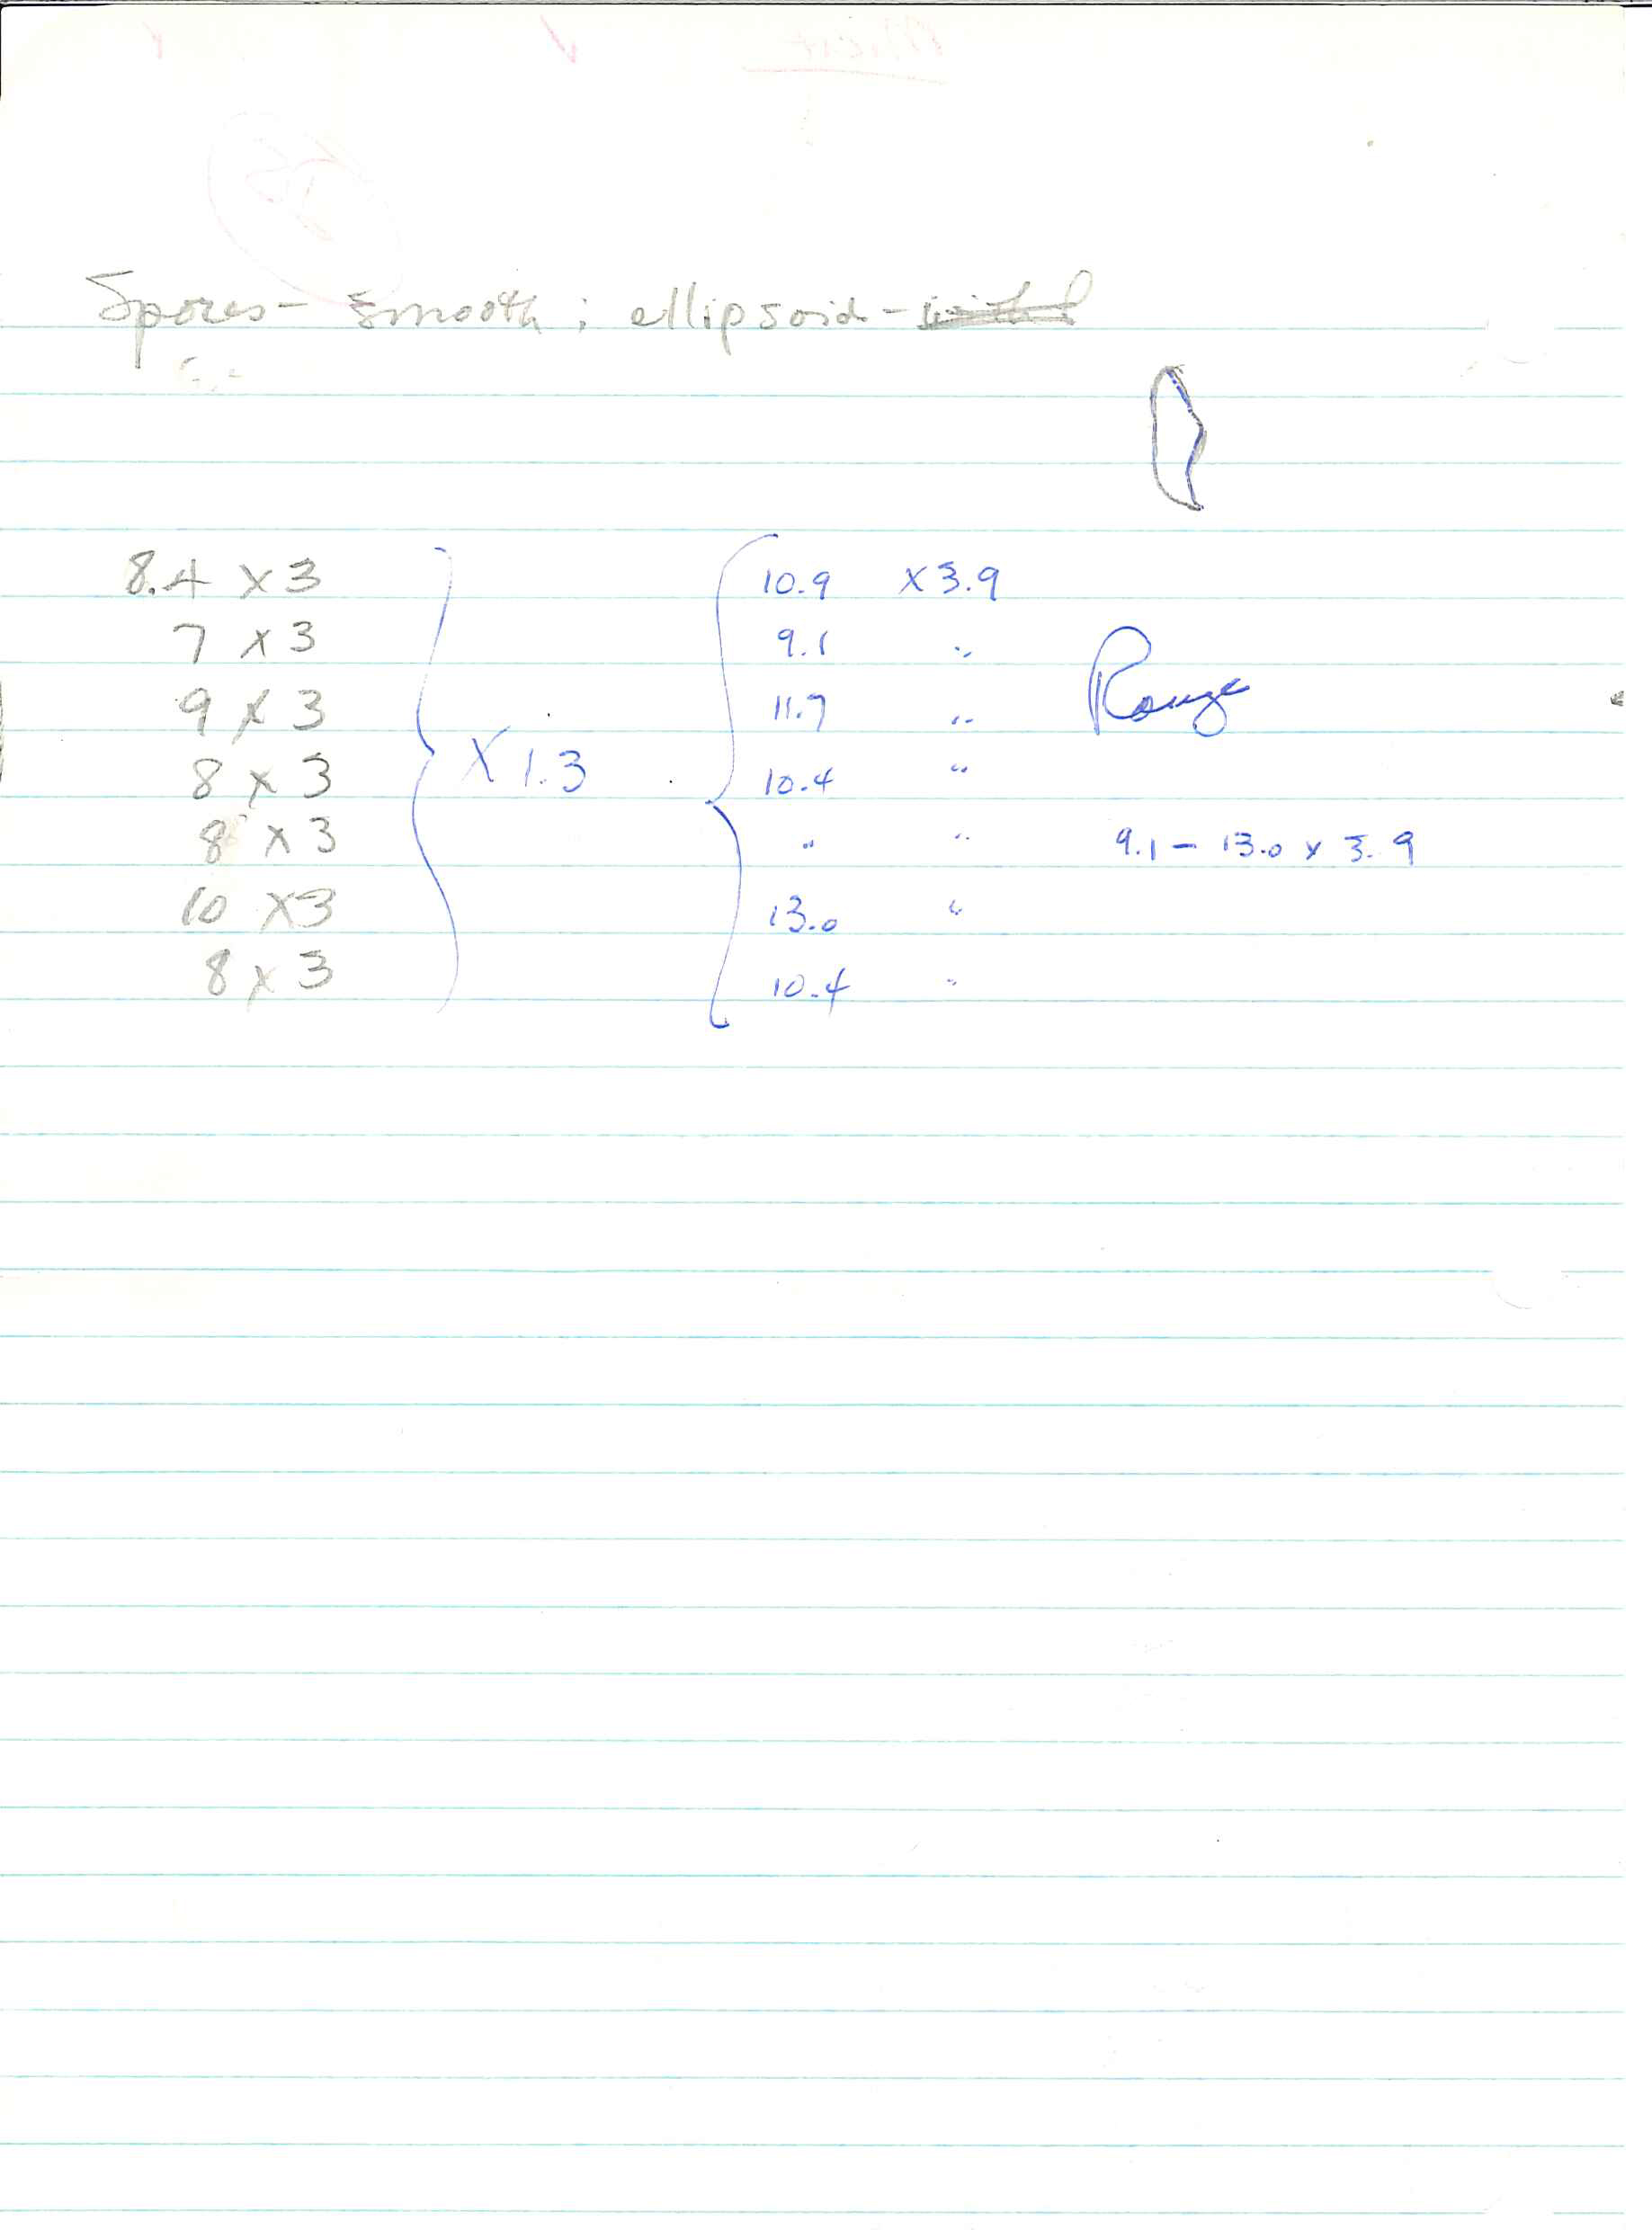 Spores - smooth; ellipsoid -
8.4 x 3 10.9 x 3.9
7 x 3 9.1 "
9 x 3 11.7 " Range
8 x 3 x 1.3 10.4 "
8 x 3 " " 9.1 - 13.0 x 3.9
10 x 3 13.0 "
8 x 3 10.4 "